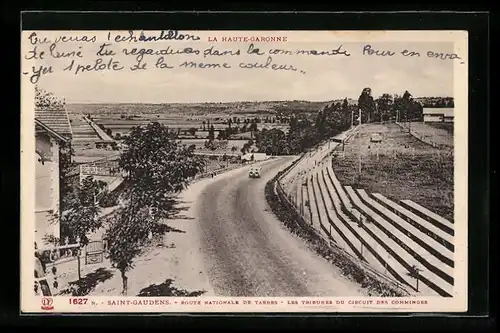 LA HAUTE-GARONNE
Tu veras l'échantillon
de lainé tu regarderas dans la commande Pour en envo
yer 1 pelote de la meme couleur
1627 N. - SAINT-GAUDENS. - ROUTE NATIONALE DE TARBES - LES TRIBUNES DU CIRCUIT DES COMMINGES